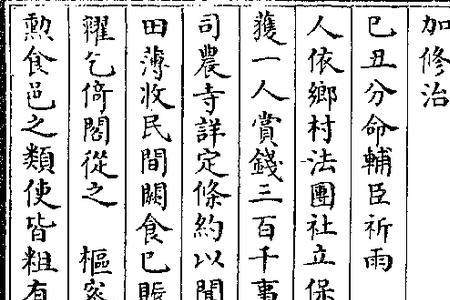 加修治
己丑分命輔臣祈雨
人依鄉村法團社立保
獲一人賞錢三百千事
司農寺詳定條約以聞
田薄收民間闕食已賑
糶乞倚閣從之　樞密
勲食邑之類使皆粗有